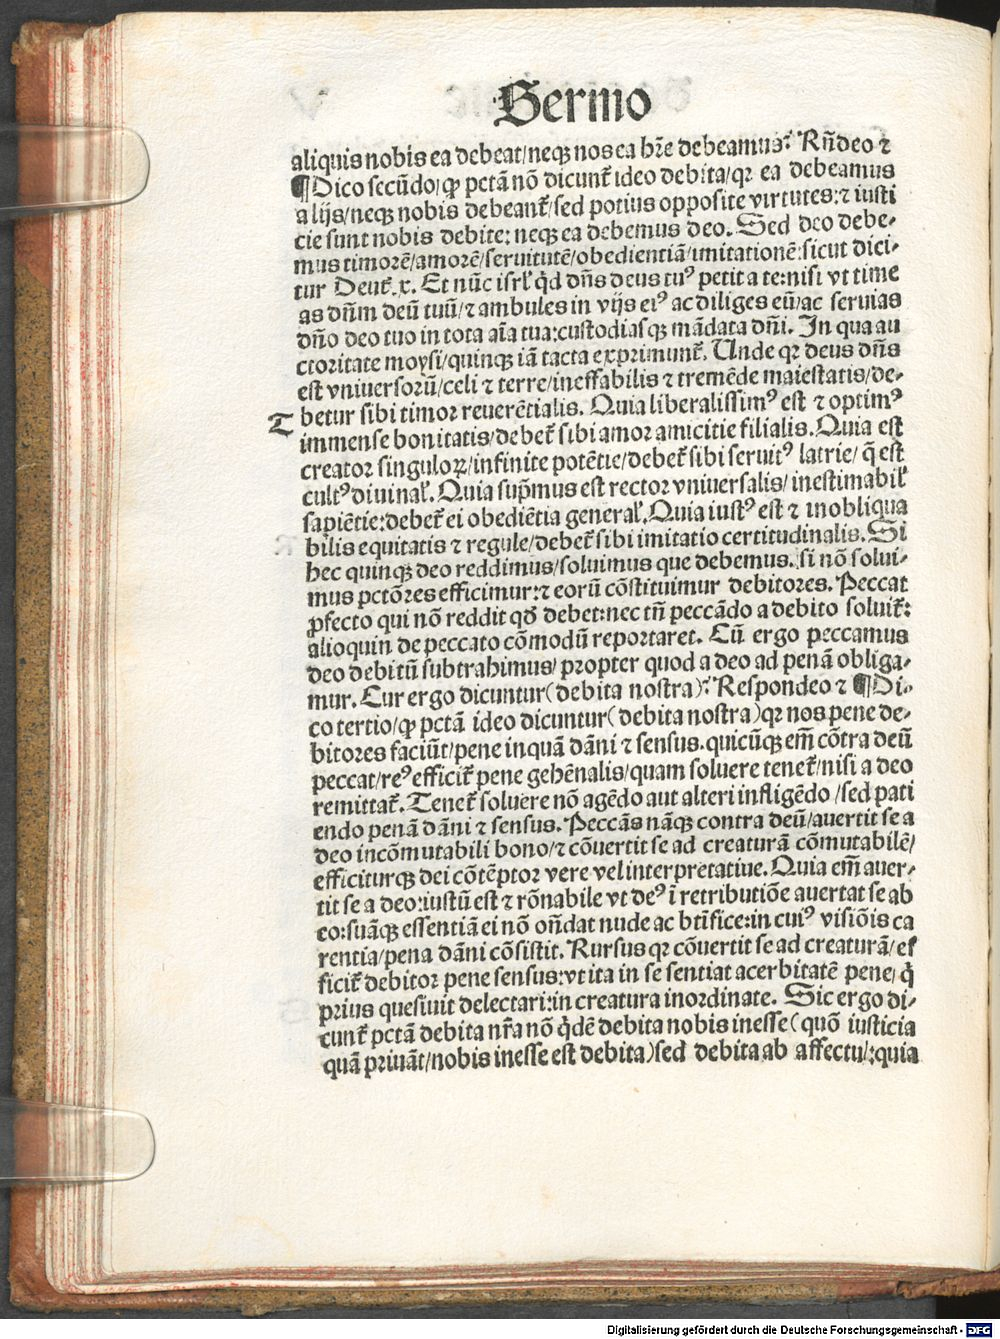 Sermo
aliquis nobis ea debeat/neqꝫ nos ea hr̃e debeamus? Rñdeo ⁊
¶Dico secũdo/ ꝙ pctã nõ dicunt̃ ideo debita/qꝛ ea debeamus
alijs/neqꝫ nobis debeant̃/sed potius opposite virtutes:⁊ iusti
cie sunt nobis debite: neqꝫ ea debemus deo. Sed deo debe⸗
mus timorẽ/amorẽ/seruitutẽ/obedientiã/imitationẽ:sicut dici⸗
tur Deut̃.x. Et nũc isrl̃ q̇d dñs deus tuꝰ petit a te:nisi vt time
as dñm deũ tuũ/⁊ ambules in vijs eiꝰ ac diliges eũ/ac seruias
dño deo tuo in tota aĩa tua:custodiasqꝫ mãdata dñi. In qua au
ctoritate moysi/quinqꝫ iã tacta exprimunt̃. Unde qꝛ deus dñs
est vniuersorũ/celi ⁊ terre/ineffabilis ⁊ tremẽde maiestatis/de⸗
T betur sibi timor reuerẽtialis. Quia liberalissimꝰ est ⁊ optimꝰ
immense bonitatis/debet̃ sibi amor amicitie filialis. Quia est
creator singuloꝝ/infinite potẽtie/debet̃ sibi seruitꝰ latrie/ q̃ est
cultꝰ diuinal̃. Quia sup̃mus est rector vniuersalis/ inestimabil̃
sapiẽtie:debet̃ ei obediẽtia general̃. Quia iustꝰ est ⁊ inobliqua
bilis equitatis ⁊ regule/debet̃ sibi imitatio certitudinalis. Si
hec quinqꝫ deo reddimus/soluimus que debemus. si nõ solui⸗
mus pctõres efficimur:⁊ eorũ cõstituimur debitores. Peccat
ꝓfecto qui nõ reddit qd̃ debet:nec tñ peccãdo a debito soluit̃:
alioquin de peccato cõmodũ reportaret. Cũ ergo peccamus
deo debitũ subtrahimus/ propter quod a deo ad penã obliga⸗
mur. Cur ergo dicuntur (debita nostra)? Respondeo ⁊ ¶Di⸗
co tertio/ꝙ pctã ideo dicuntur (debita nostra) qꝛ nos pene de⸗
bitores faciũt/pene inquã dãni ⁊ sensus. quicũqꝫ em̃ cõtra deũ
peccat/reꝰ efficit̃ pene gehẽnalis/quam soluere tenet̃/nisi a deo
remittat̃. Tenet̃ soluere nõ agẽdo aut alteri infligẽdo /sed pati
endo penã dãni ⁊ sensus. Peccãs nãqꝫ contra deũ/auertit se a
deo incõmutabili bono/⁊ cõuertit se ad creaturã cõmutabilẽ/
efficiturqꝫ dei cõtẽptor vere vel interpretatiue. Quia em̃ auer⸗
tit se a deo:iustũ est ⁊ rõnabile vt deꝰ ĩ retributiõe auertat se ab
eo:suãqꝫ essentiã ei nõ oñdat nude ac btĩfice:in cuiꝰ visiõis ca
rentia/pena dãni cõsistit. Rursus qꝛ cõuertit se ad creaturã/ef
ficit̃ debitor pene sensus:vt ita in se sentiat acerbitatẽ pene/ q̇
prius quesiuit delectari:in creatura inordinate. Sic ergo di⸗
cunt̃ pctã debita nr̃a nõ q̇dẽ debita nobis inesse (quõ iusticia
quã priuãt/nobis inesse est debita) sed debita ab affectu/:quia
Digitalisierung gefördert durch die Deutsche Forschungsgemeinschaft - DFG